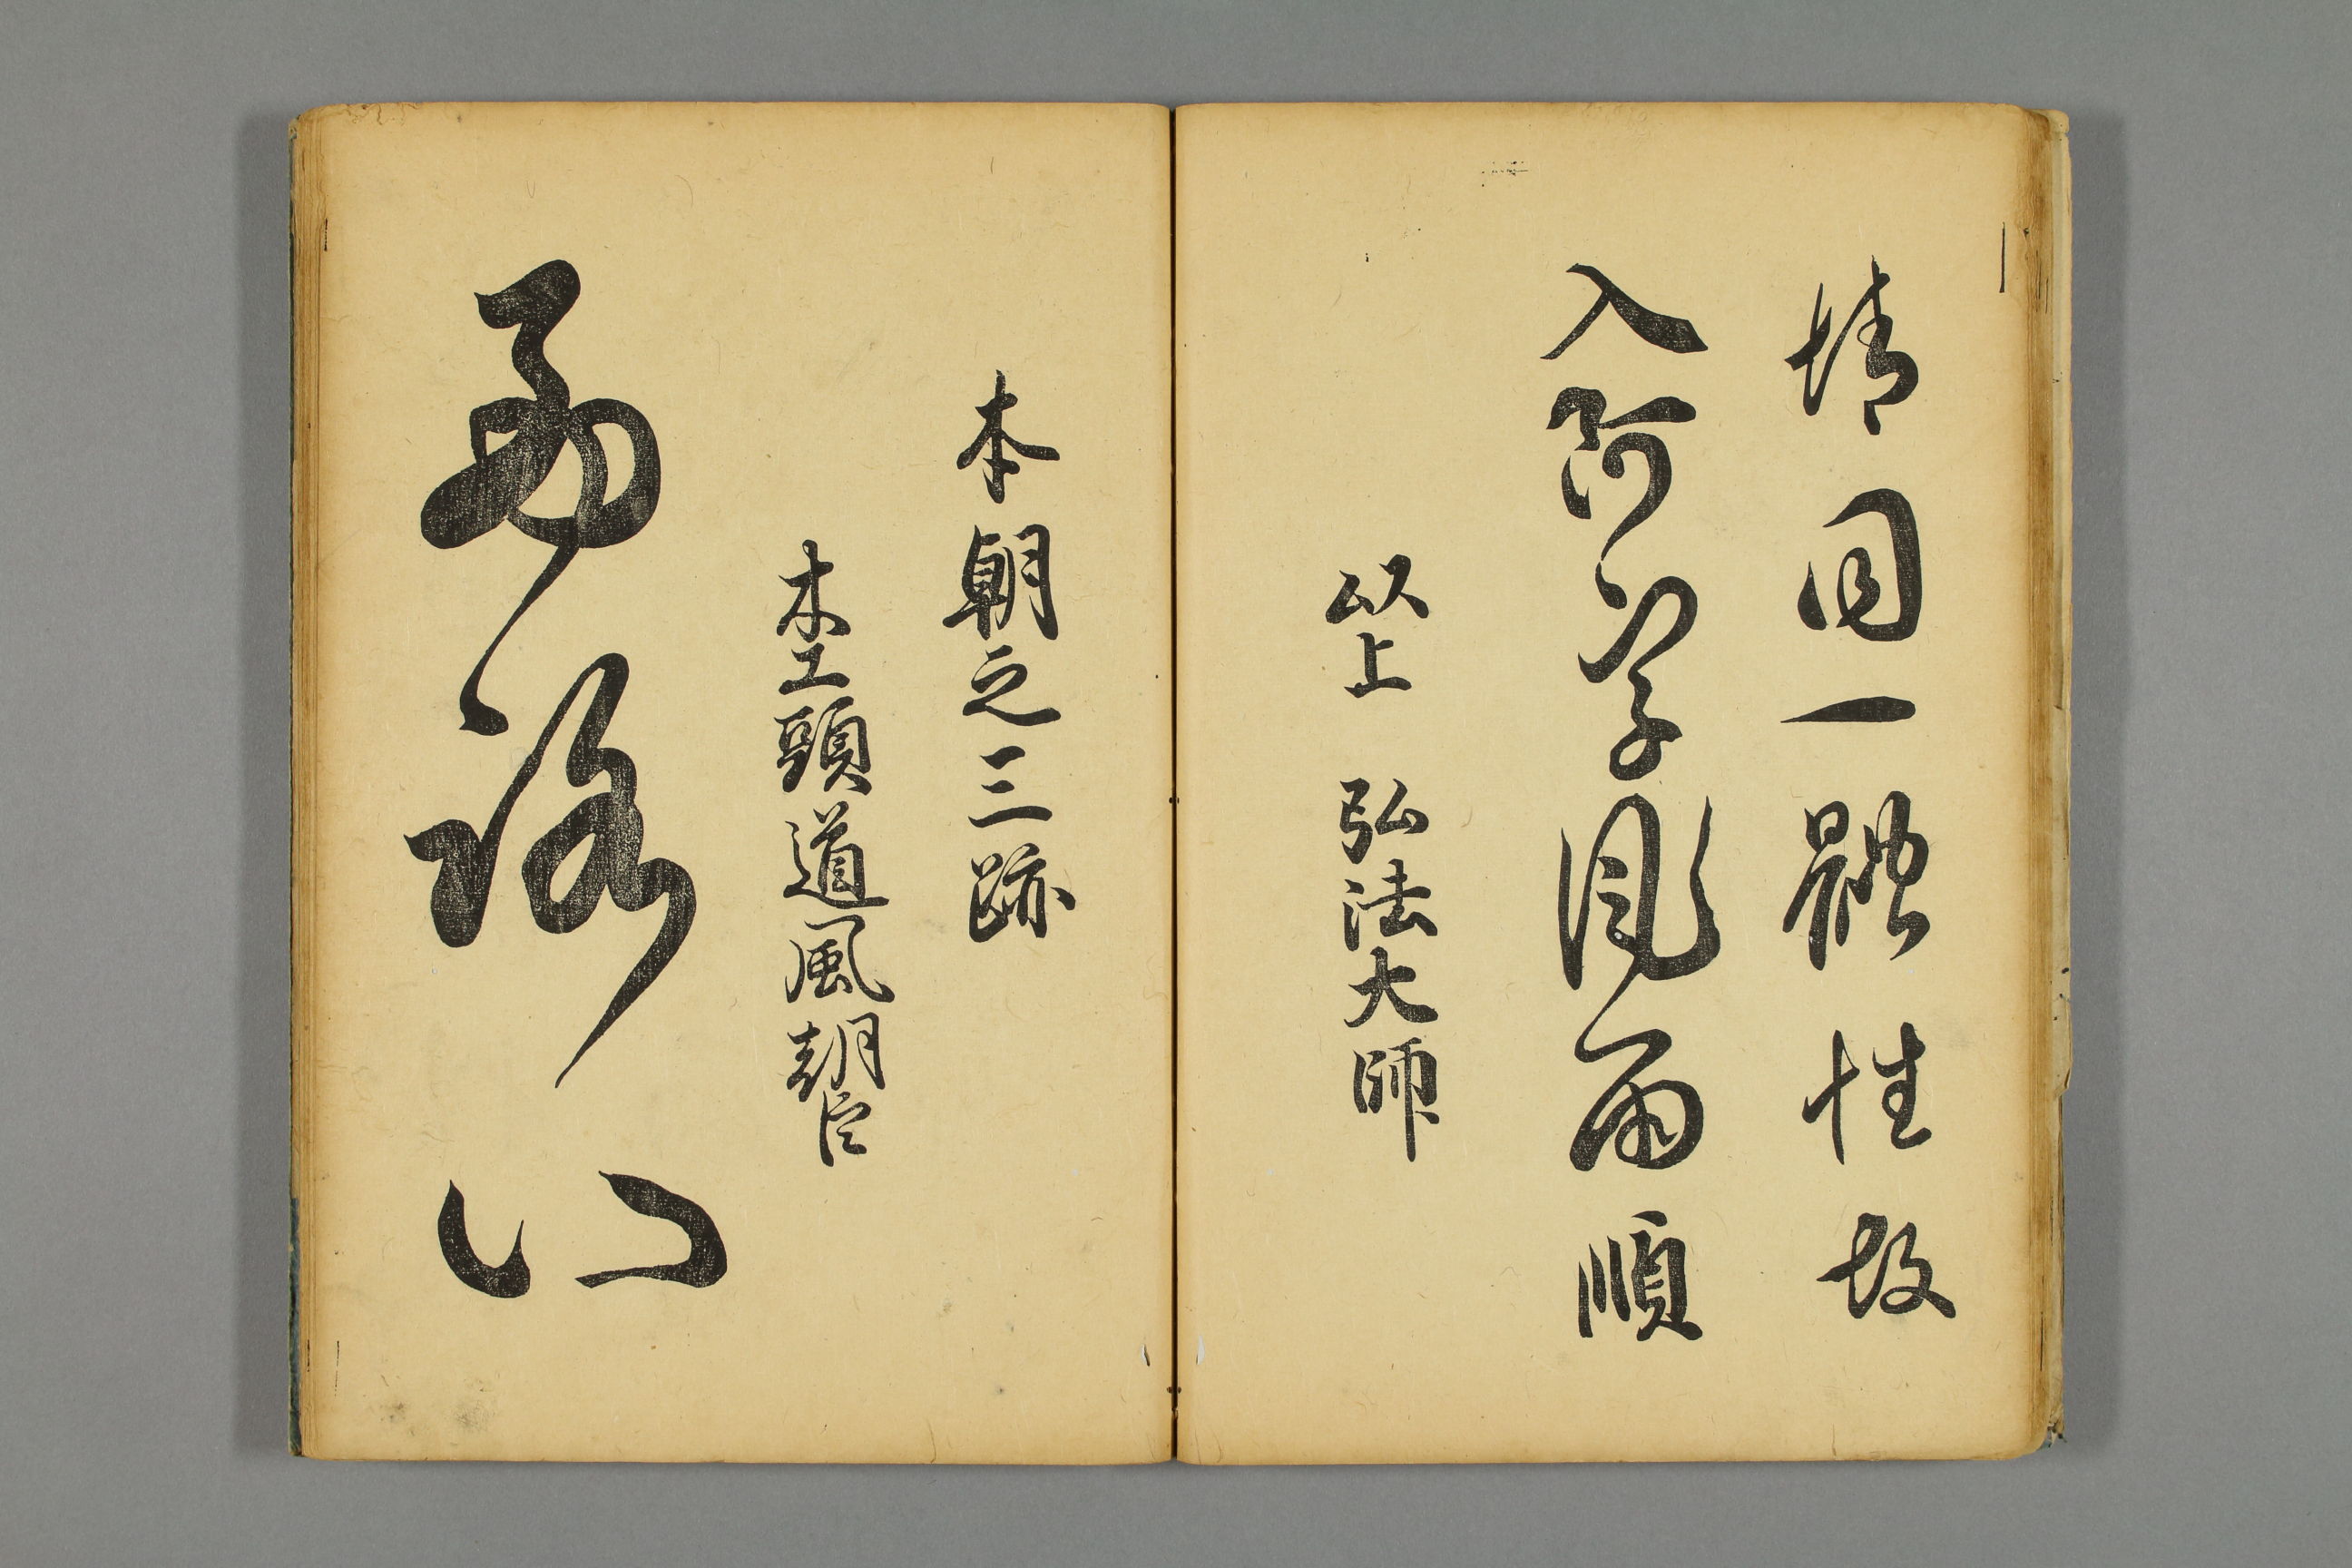 情同一體性故
入阿字風雨順
以上　弘法大師
本朝之三跡
木工頭道風朝臣